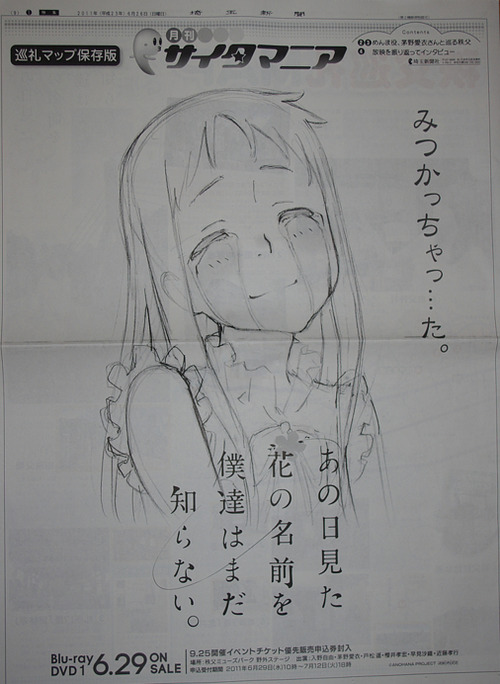 2011年(平成23年)6月26日(日曜日)
埼玉新聞
巡礼マップ保存版
月刊
サイタマニア
Contents
2 3 めんま役、茅野愛衣さんと巡る秩父
4 放映を振り返ってインタビュー
埼玉新聞社
みつかっちゃっ…た。
あの日見た
花の名前を
僕達はまだ
知らない。
Blu-ray
DVD 1
6.29 ON SALE
9.25開催イベントチケット優先販売申込券封入
場所:秩父ミューズパーク 野外ステージ 出演:入野自由・茅野愛衣・戸松遥・櫻井孝宏・早見沙織・近藤孝行
申込受付期間 2011年6月29日(水)10時〜7月12日(火)18時
©ANOHANA PROJECT